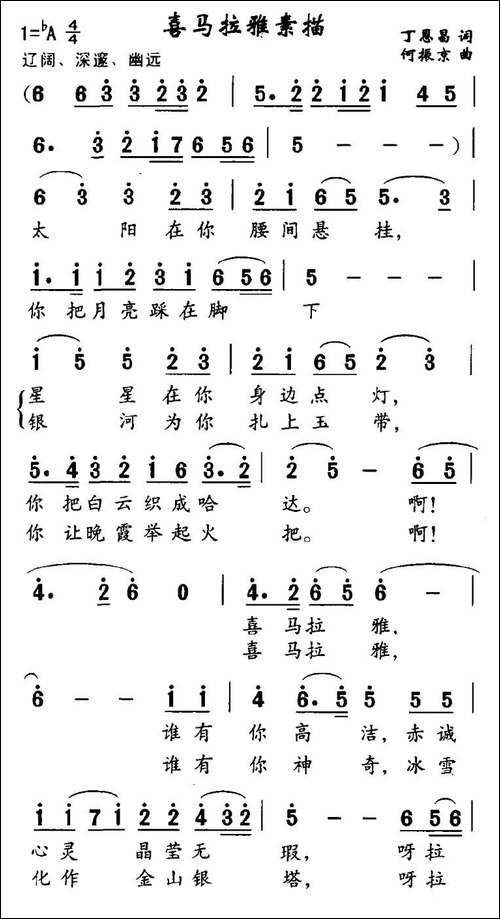 喜马拉雅素描
1=♭A 4/4
丁恩昌 词
辽阔、深邃、幽远
何振京 曲
(6 6 3 3 2 3 2 | 5. 2 2 1 2 1 4 5 |
6. 3 2 1 7 6 5 6 | 5 - - - ) |
6 3 3 2 3 | 2 1 6 5 5. 3 |
太 阳 在 你 腰 间 悬 挂,
1. 1 1 2 3 1 6 5 6 | 5 - - - |
你 把 月 亮 踩 在 脚 下
1 5 5 2 3 | 2 1 6 5 2 3 |
星 星 在 你 身 边 点 灯,
银 河 为 你 扎 上 玉 带,
5. 4 3 2 1 6 3. 2 | 2 5 - 6 5 |
你 把 白 云 织 成 哈 达。 啊!
你 让 晚 霞 举 起 火 把。 啊!
4. 2 6 0 | 4. 2 6 5 6 - |
喜 马 拉 雅,
喜 马 拉 雅,
6 - - 1 1 | 4 6. 5 5 5 5 |
谁 有 你 高 洁, 赤 诚
谁 有 你 神 奇, 冰 雪
1 1 7 1 2 2 4 3 2 | 5 - - 5 5 6 |
心 灵 晶 莹 无 瑕, 呀 拉
化 作 金 山 银 塔, 呀 拉